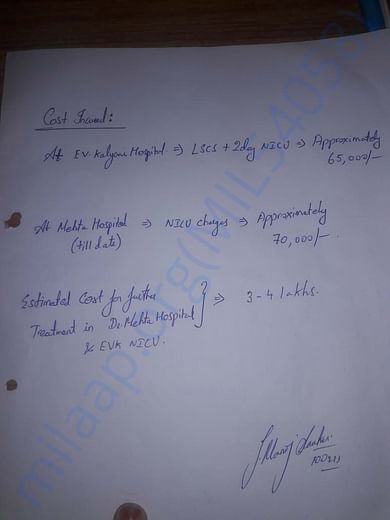 Cost Incured:
At EV. Kalyani Hospital => LSCS + 2day NICU => Approximately
65,000/-
At Mehta Hospital => NICU charges => Approximately
(till date) 70,000/-.
Estimated Cost for further
Treatment in Dr. Mehta Hospital } => 3-4 lakhs.
& EVK NICU.
milaap.org(MIL54058)